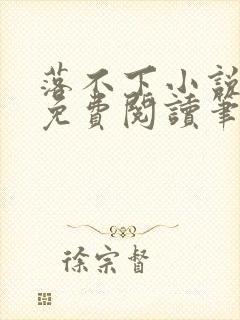 落不下小說
免費閱讀筆
徐宗督